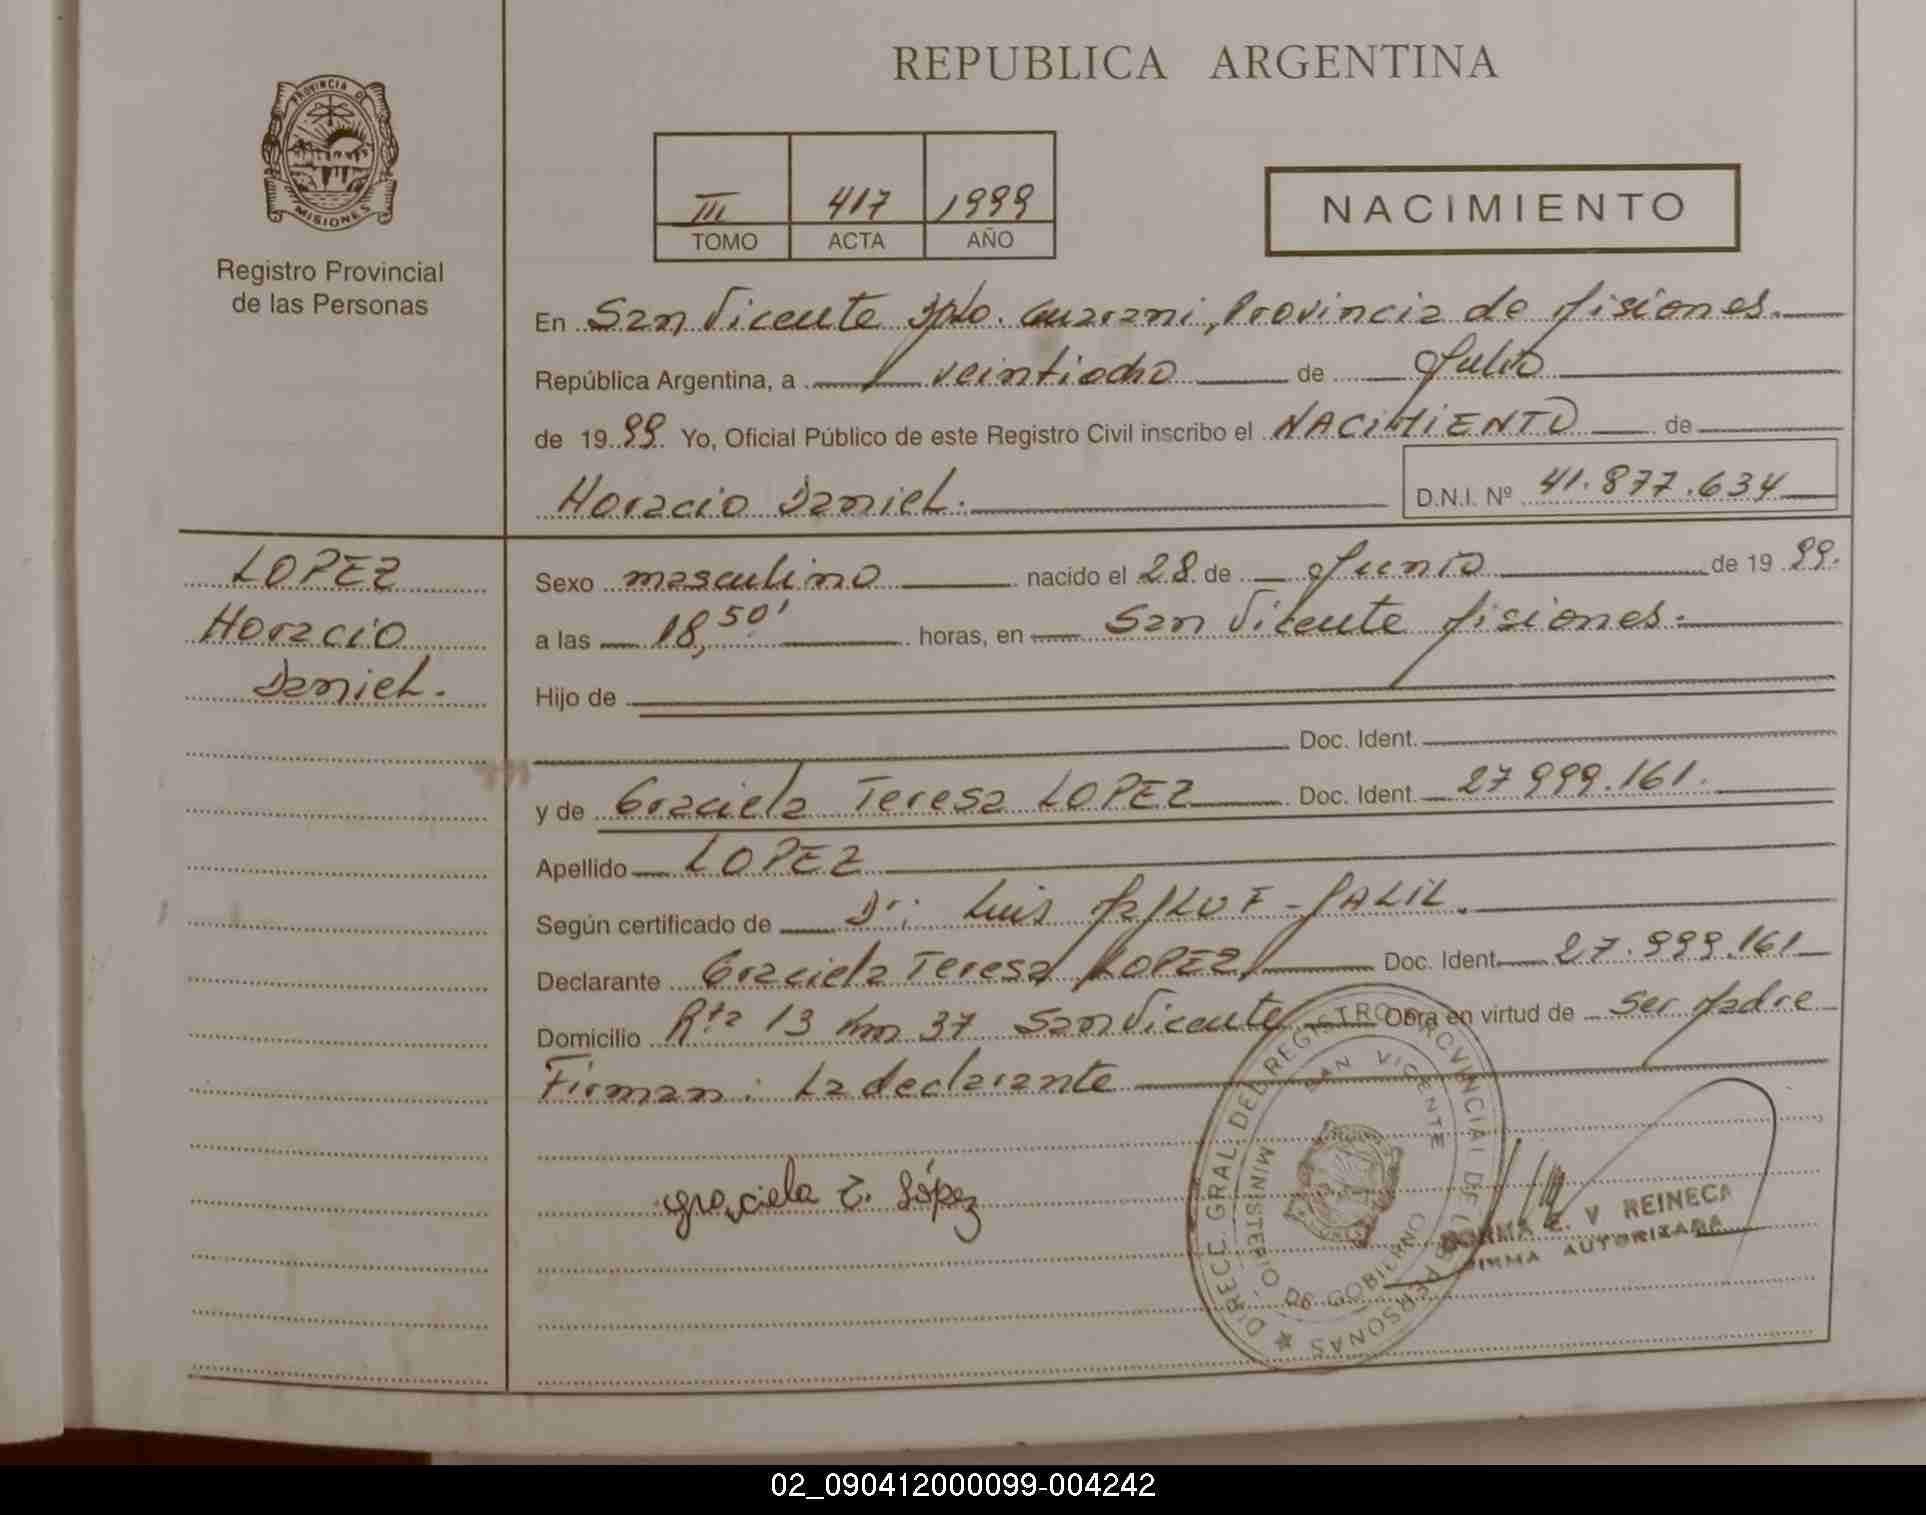 REPUBLICA ARGENTINA
PROVINCIA DE
MISIONES
Registro Provincial
de las Personas
III 417 1999
TOMO ACTA AÑO
NACIMIENTO
En San Vicente Dpto. Guarani, Provincia de Misiones.
República Argentina, a veintiocho de Julio
de 1999. Yo, Oficial Público de este Registro Civil inscribo el NACIMIENTO de
Horacio Daniel.
D.N.I. Nº 41.877.634
LOPEZ
Horacio
Daniel.
Sexo masculino nacido el 28 de Junio de 1999.
a las 18,50' horas, en San Vicente Misiones.
Hijo de
Doc. Ident.
y de Graciela Teresa LOPEZ Doc. Ident. 27999.161.
Apellido LOPEZ
Según certificado de Dr: Luis
Declarante Graciela Teresa LOPEZ, Doc. Ident. 27.999.161
Domicilio Rta 13 Km 37 San Vicente Obra en virtud de Ser Madre
Firman: La declarante
Graciela T. López
DIRECC. GRAL. DEL REGISTRO PROVINCIAL DE LAS PERSONAS
SAN VICENTE
MINISTERIO DE GOBIERNO
NORMA E. V REINECA
FIRMA AUTORIZADA
02_090412000099-004242